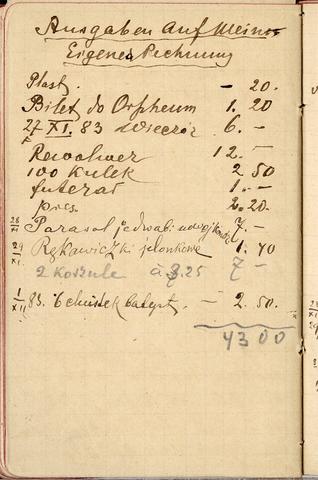 Ausgaben auf Meine
Eigene Rechnung
— 20.
Bilet do Orpheum 1. 20
27 XI. 83 Wieczór 6. —
Rewolwer 12. —
100 kulek 2 50
futerał 1. —
2. 20
28 XI Parasol jedwabi 7. —
29 XI Rękawiczki jelonkowe 1. 70
2 koszule à 3. 25 7 —
1 XII 83. 6 chustek batyst. — 2 50.
43 00